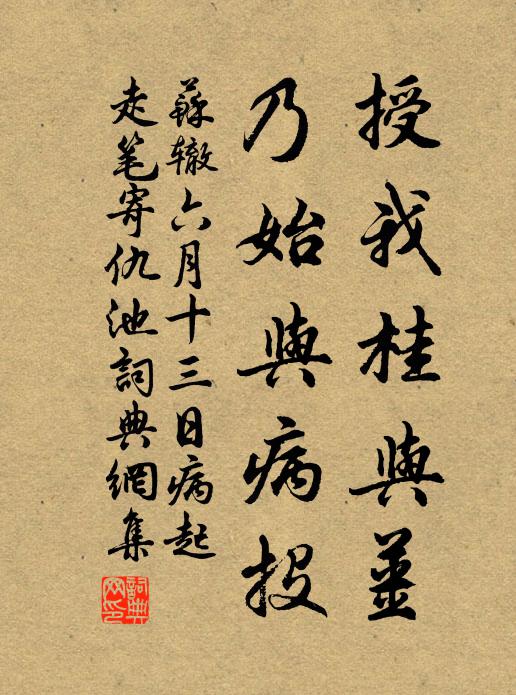 授我桂與薑
乃始與病投
蘇辙六月十三日病起
走笔寄仇池詞典網集
詞典网印